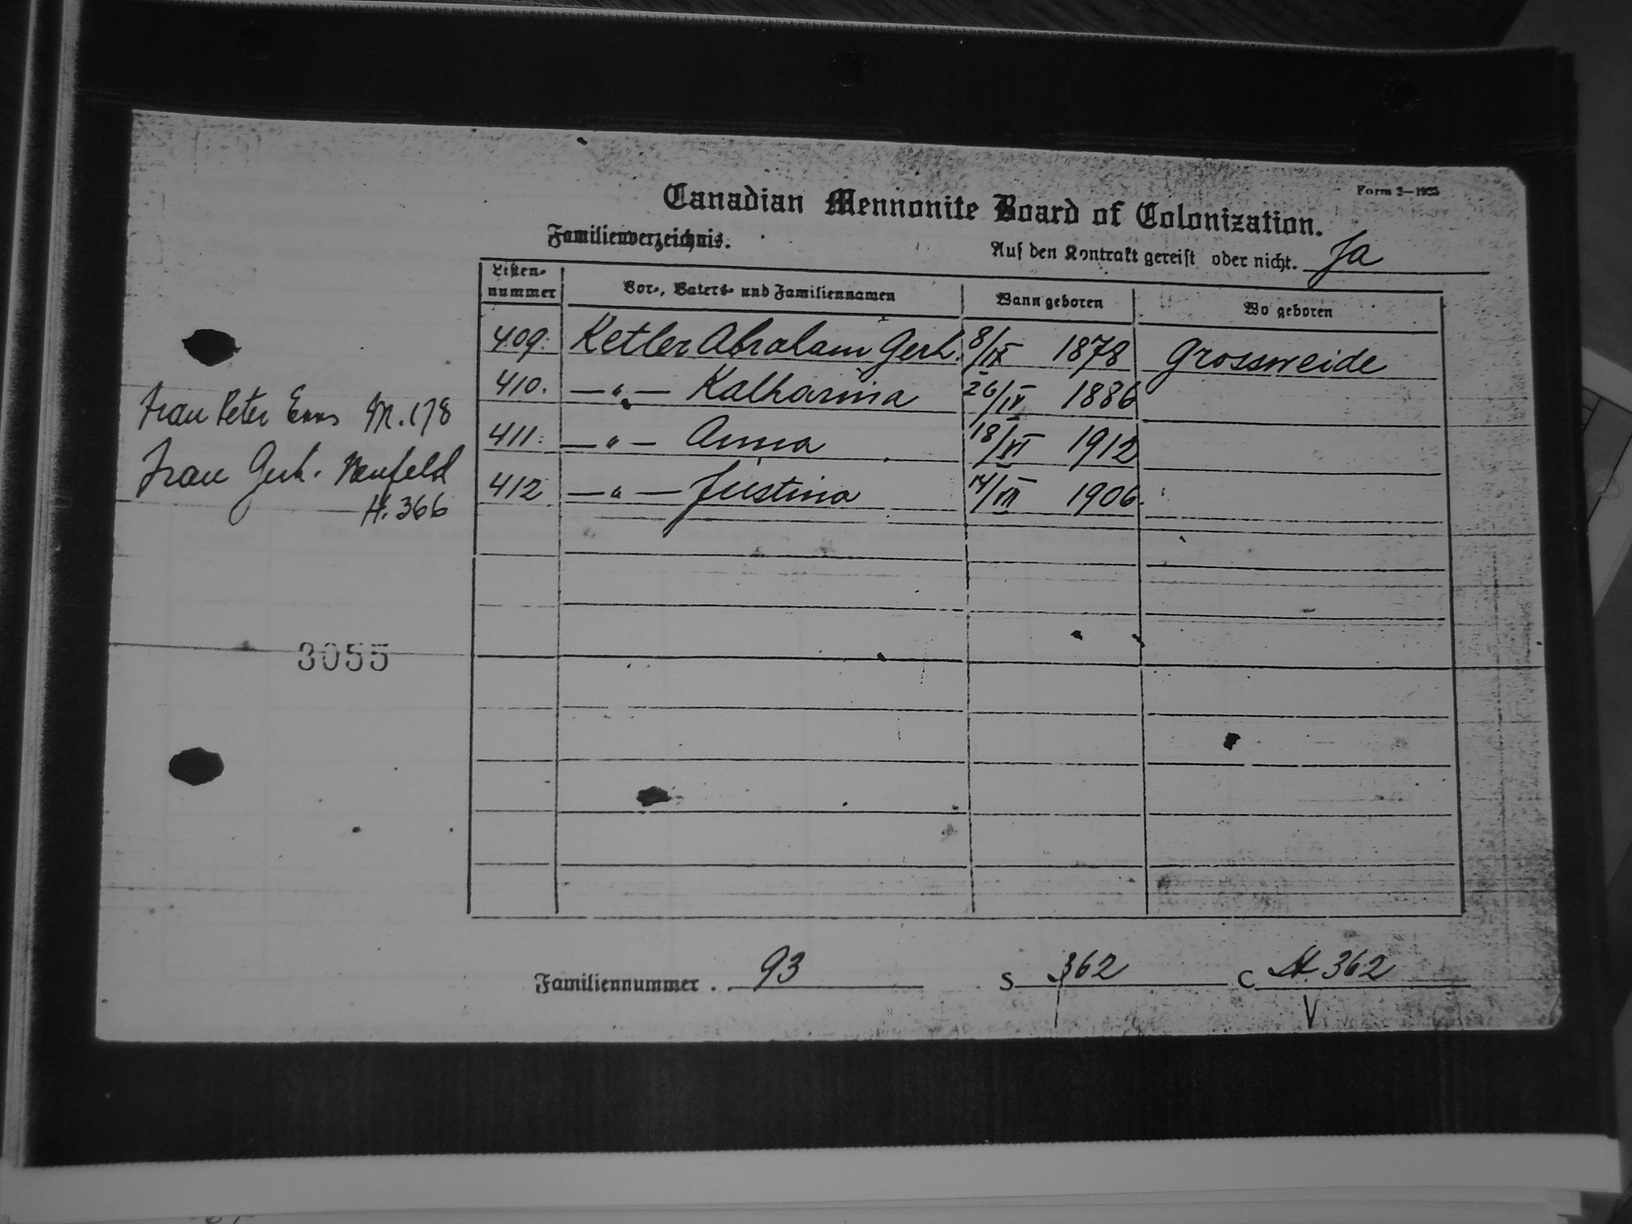 Form 2—1925
Canadian Mennonite Board of Colonization.
Familienverzeichnis.
Auf den Kontrakt gereist oder nicht. Ja
Listen-nummer
Vor-, Vaters- und Familiennamen
Wann geboren
Wo geboren
409. Ketler Abraham Gerh. 8/IX 1878 Grossweide
410. —"— Katharina 26/IV 1886
Frau Peter Enns M.178
411. —"— Anna 18/VI 1912
Frau Gerh. Neufeld
412 —"— Justina 14/III 1906.
H.366
3055
Familiennummer . 93 S 362 C H 362
V